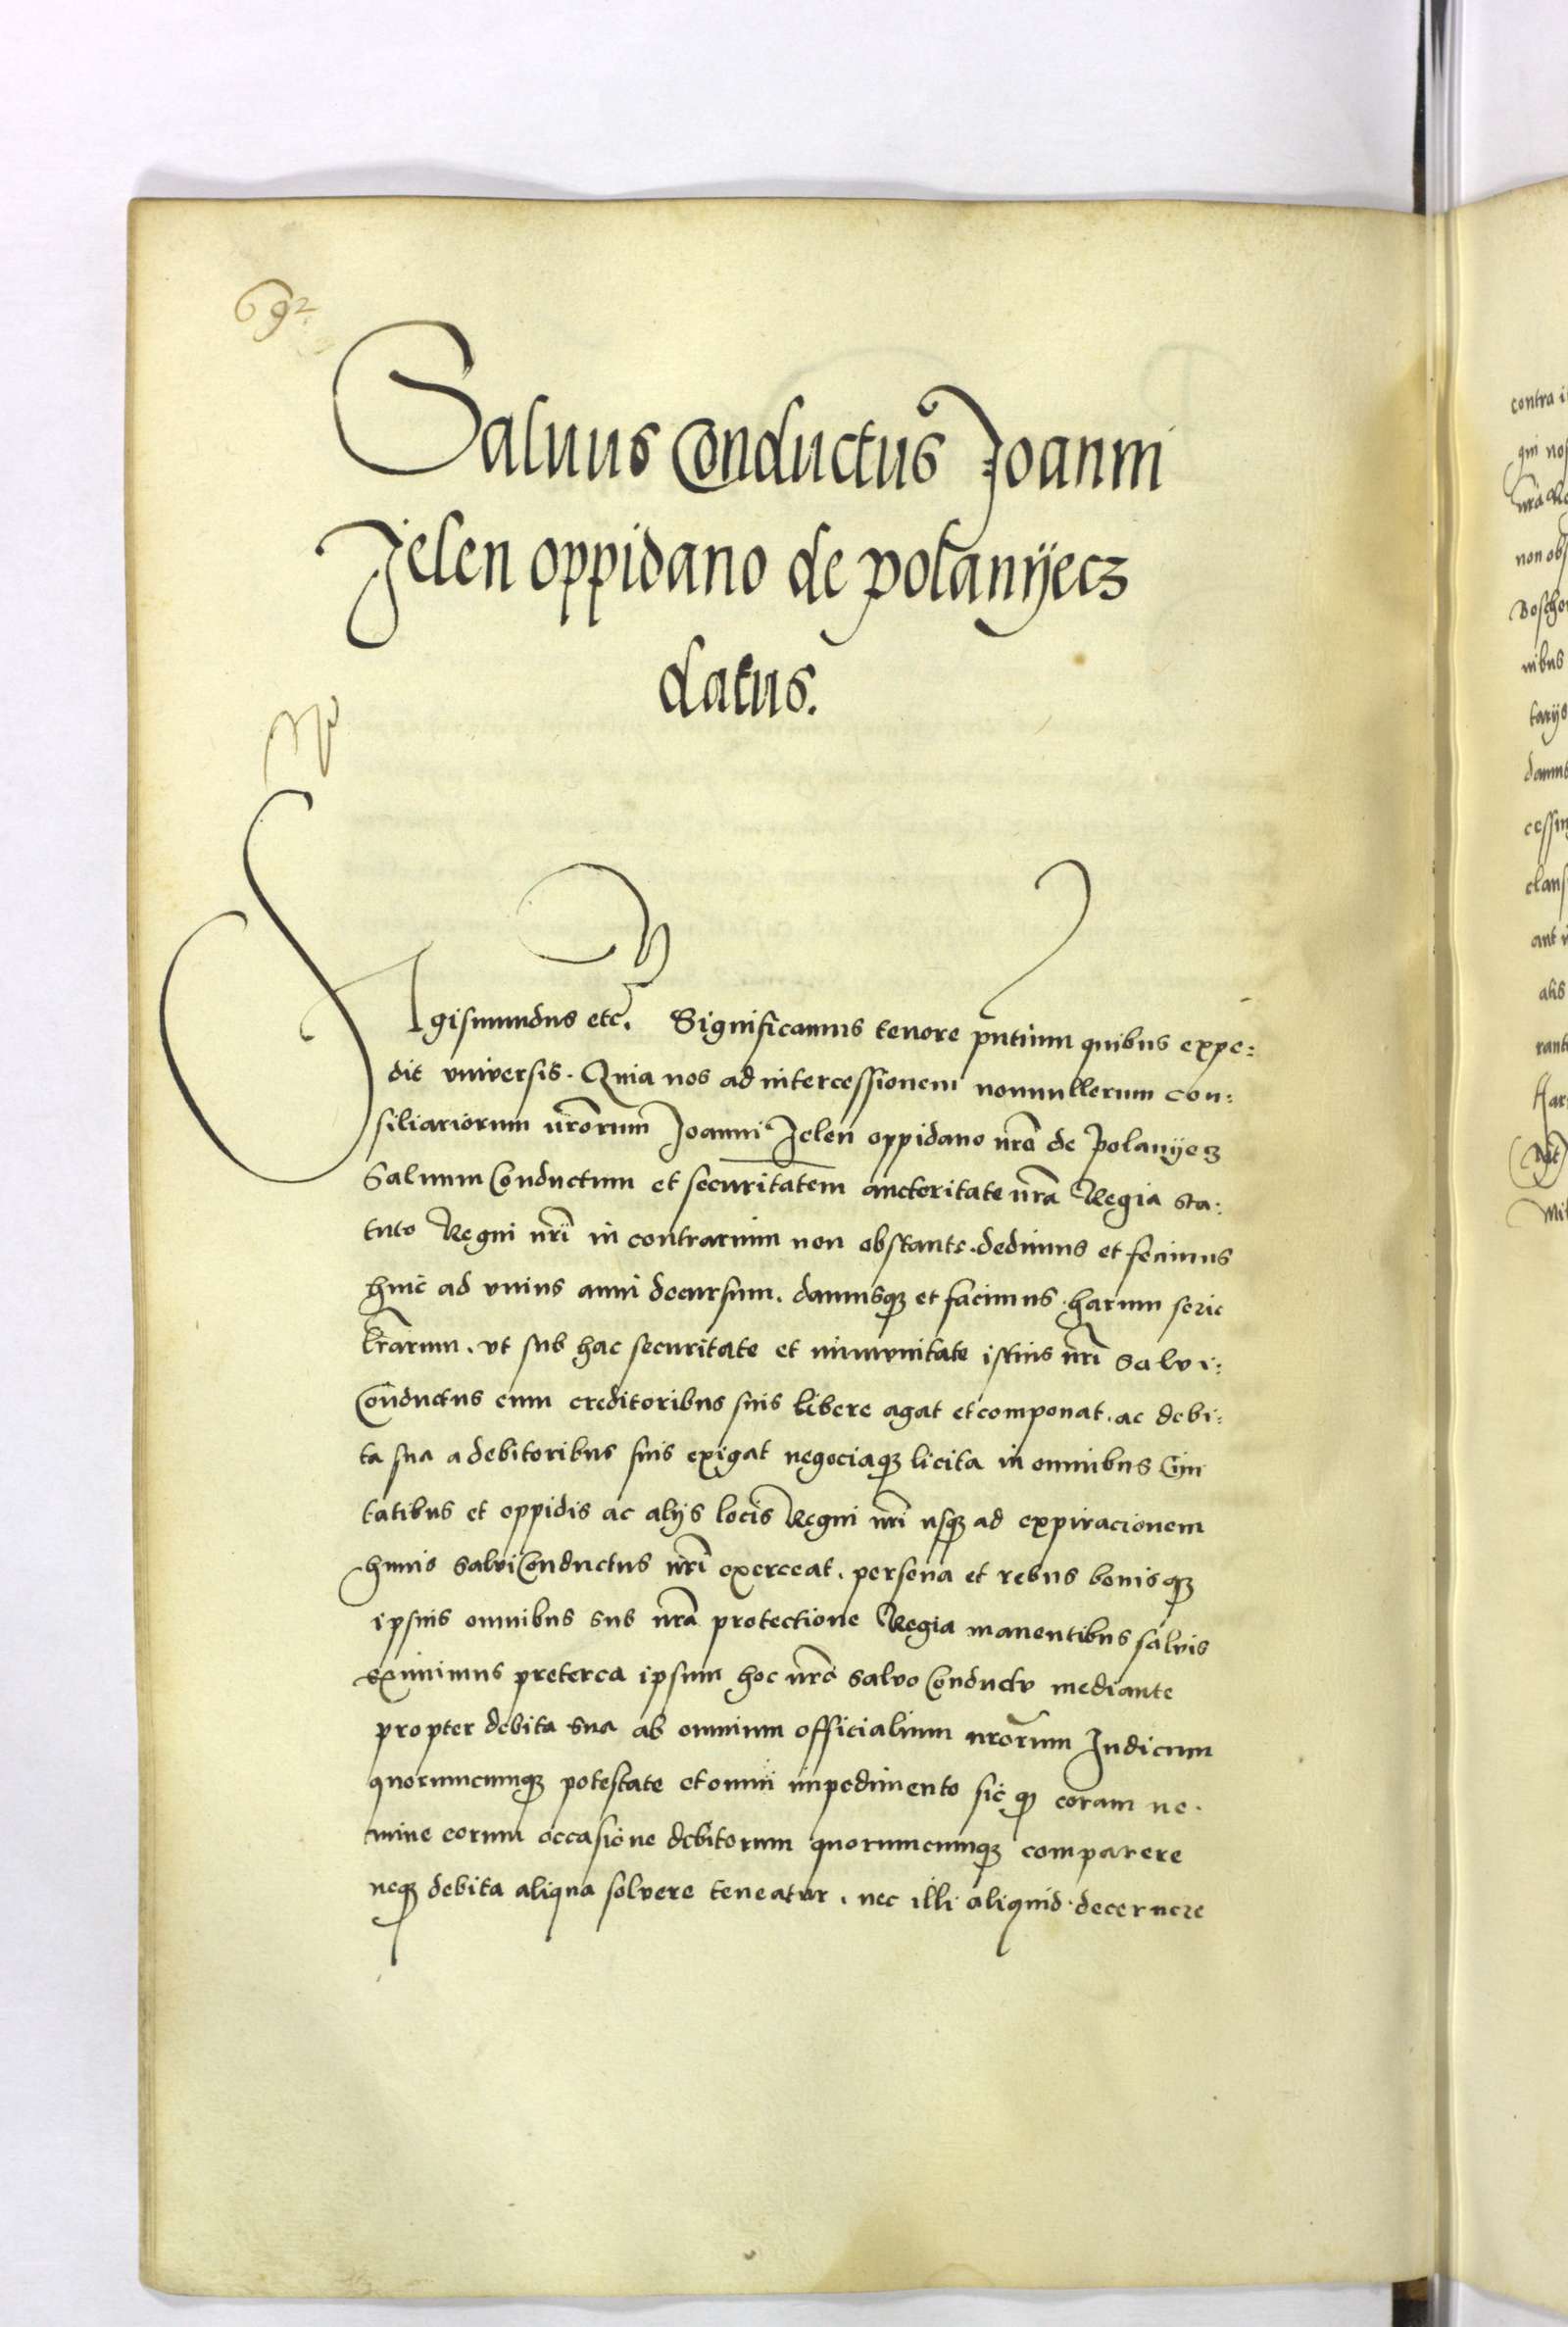 692
Saluus Conductus Joanni
Jelen oppidano de polanyecz
datus.
SIgismundus etc. Significamus tenore pntium quibus expe:
dit vniversis. Quia nos ad intercessionem nonnullorum con:
siliariorum nrorum Joanni Jelen oppidano nro de Polanyecz
Saluum Conductum et securitatem auctoritate nra Regia sta:
tuto Regni nri in contrarium non obstante. dedimus et fecimus
hinc ad vnius anni decursum. damusq3 et facimus harum serie
lrarum. vt sub hac securitate et immvnitate istius nri salvi:
Conductus cum creditoribus suis libere agat et componat. ac debi:
ta sua a debitoribus suis exigat negociaq3 licita in omnibus Civi
tatibus et oppidis ac alijs locis Regni nri usq3 ad expiracionem
huius salviConductus nri exerceat. persona et rebus bonisq3
ipsius omnibus sub nra protectione Regia manentibus salvis
eximimus preterea ipsum hoc nro salvo Conductv mediante
propter debita sua ab omnium officialium nrorum Judicum
quorumcumq3 potestate et omni impedimento sic q coram ne.
mine eorum occasione debitorum quorumcumq3 comparere
neq3 debita aliqua solvere teneatvr. nec illi aliquid decernere
contra i
qui nos
non obs
nibus
tarijs
cessin
claus
aut
alis
rant
Har